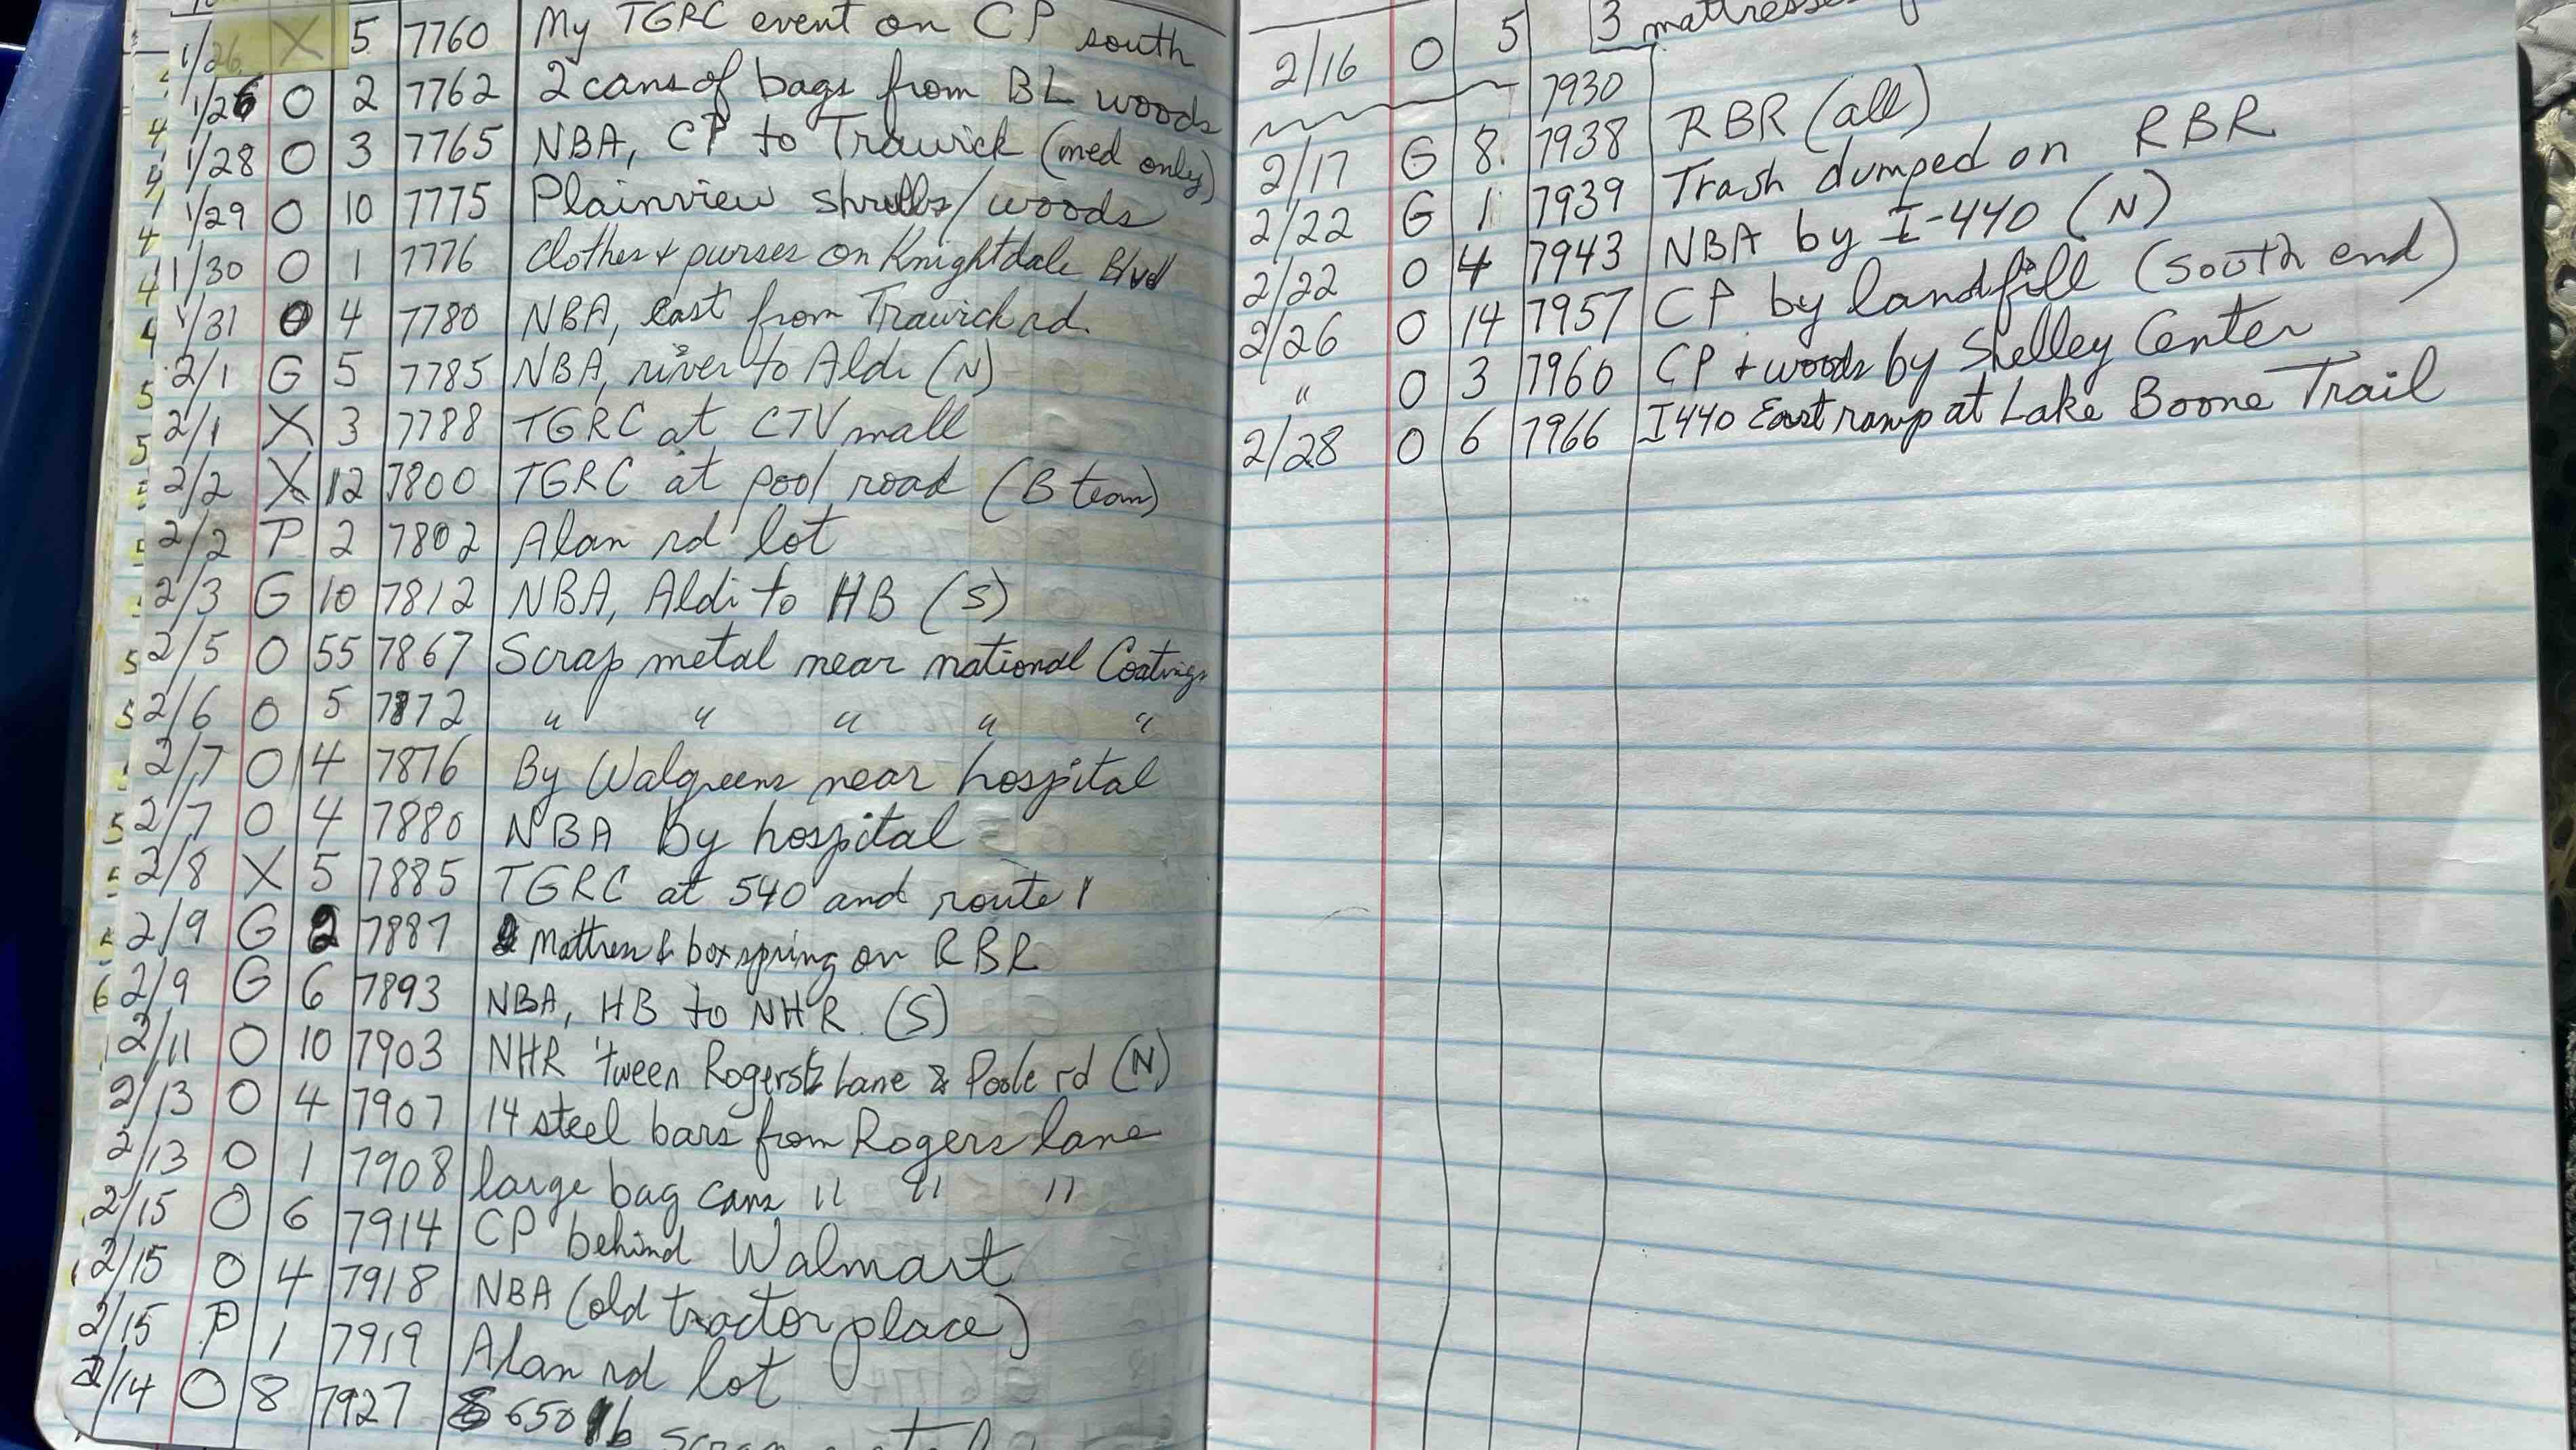 1/26 X 5 7760 My TGRC event on CP south
1/26 O 2 7762 2 cans of bags from BL woods
1/28 O 3 7765 NBA, CP to Trawick (med only)
1/29 O 10 7775 Plainview shrubs/woods
1/30 O 1 7776 Clothes + purses on Knightdale Blvd
1/31 O 4 7780 NBA, east from Trawick rd.
2/1 G 5 7785 NBA, river to Aldi (N)
2/1 X 3 7788 TGRC at CTV mall
2/2 X 12 7800 TGRC at pool road (B team)
2/2 P 2 7802 Alan rd lot
2/3 G 10 7812 NBA, Aldi to HB (S)
2/5 O 55 7867 Scrap metal near national Coatings
2/6 O 5 7872 " " " " "
2/7 O 4 7876 By Walgreens near hospital
2/7 O 4 7880 NBA by hospital
2/8 X 5 7885 TGRC at 540 and route 1
2/9 G 2 7887 Mattress & boxspring on RBR
2/9 G 6 7893 NBA, HB to NHR (S)
2/11 O 10 7903 NHR 'tween Rogers Lane & Poole rd (N)
2/13 O 4 7907 14 steel bars from Rogers lane
2/13 O 1 7908 large bag cans " " "
2/15 O 6 7914 CP behind Walmart
2/15 O 4 7918 NBA (old tractor place)
2/15 P 1 7919 Alan rd lot
2/14 O 8 7927 650 lb
3 mattresses
2/16 O 5 7930
2/17 G 8 7938 RBR (all)
2/22 G 1 7939 Trash dumped on RBR
2/22 O 4 7943 NBA by I-440 (N)
2/26 O 14 7957 CP by landfill (south end)
" O 3 7960 CP + woods by Shelley Center
2/28 O 6 7966 I440 East ramp at Lake Boone Trail